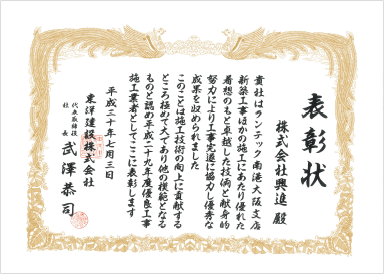 表彰状
株式会社興進 殿
貴社はランテック南港大阪支店
新築工事ほかの施工にあたり優れた
着想のもと卓越した技術と献身的
努力により工事完遂に協力し優秀な
成果を収められました
このことは施工技術の向上に貢献する
ところ極めて大であり他の模範となる
ものと認め平成二十九年度優良工事
施工業者としてここに表彰します
平成三十年七月三日
東洋建設株式会社
代表取締役
社長 武澤恭司